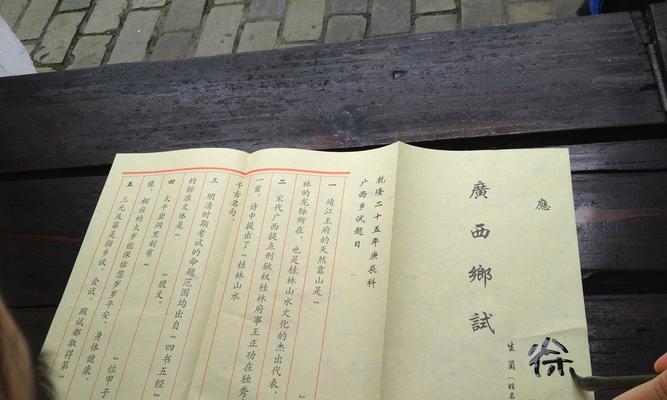 應
廣西鄉試
生員（姓名
徐
乾隆二十五年庚辰科
广西乡试题目
一 靖江王府的天然靠山是“
林的龙脉所在，也是桂林山水文化的杰出代表。
二 宋代广西提点刑狱权桂林府事王正功在独秀
一首，诗中提出了“桂林山水
千古名句。
三 明清时期考试的命题范围均出自“四书五经”
的标准文体是“ ”股文。
四 太平岩洞里刻有“ ”位甲子
像，相应的太岁能保佑您岁岁平安，身体健康。
五 三元及第是指乡试，会试，殿试都取得第“